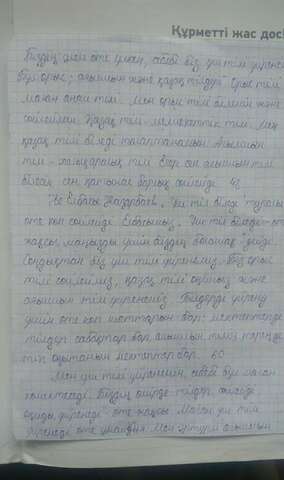 Құрметті жас дос
Біздің үшін өте қиын, себебі біз үш тіл үйренеміз
бұл орыс, ағылшын және қазақ тілдері. Орыс тілі
маған ана тілі. Мен орыс тілі білемін және
сөйлеймін. Қазақ тілі - мемлекеттік тілі. Мен
қазақ тілі біледі талаптанамын. Ағылшын
тілі - халықаралық тілі. Егер сен ағылшын тілі
білсең сен қатынас барлық сөйлесіде. 42
Елбасы Назарбаев, "Үш тіл біледі" туралы
өте көп сөйлейді Елбасымыз, "Үш тіл біледі - өте
жақсы, маңызды үшін біздің болашақ" дейді.
Сондықтан біз үш тілі үйренеміз. Біз орыс
тілі сөйлейміз, қазақ тілі оқимыз және
ағылшын тілі үйренеміз. Тілдерді үйрену
үшін өте көп шаттарын бар: мектептерде
тілдер сабақтар бар, ағылшын тілін тереңде
тіп оқытанын мектептар бар. 60
Мен үш тілі үйренемін, себебі бұл маған
көмектеседі. Біздің өмірде тілдер сөйлеседі,
оқиды, үйренеді - өте жақсы. Маған үш тілі
үйренеді өте ұнайды. Мен ағылшын